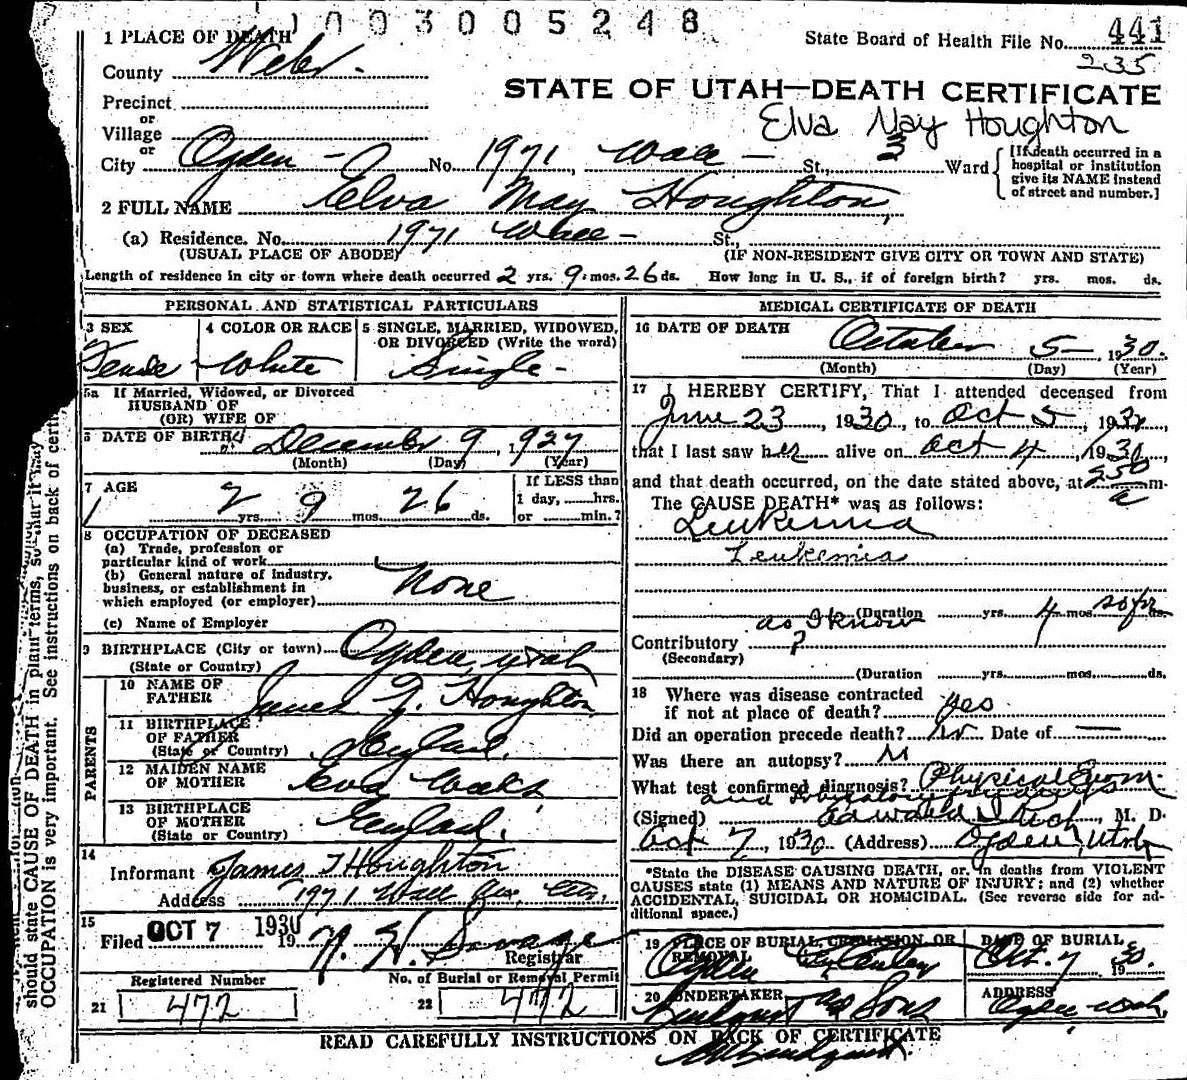 1003005248
1 PLACE OF DEATH
State Board of Health File No. 441
235
County Weber
STATE OF UTAH—DEATH CERTIFICATE
Precinct
or
Village
Elva May Houghton
or
City Ogden No. 1971 Wall St., 3 Ward
[If death occurred in a
hospital or institution
give its NAME instead
of street and number.]
2 FULL NAME Elva May Houghton
(a) Residence. No. 1971 Wall St.,
(USUAL PLACE OF ABODE) (IF NON-RESIDENT GIVE CITY OR TOWN AND STATE)
Length of residence in city or town where death occurred 2 yrs. 9 mos. 26 ds. How long in U. S., if of foreign birth? yrs. mos. ds.
PERSONAL AND STATISTICAL PARTICULARS
3 SEX 4 COLOR OR RACE 5 SINGLE, MARRIED, WIDOWED,
OR DIVORCED (Write the word)
Female White Single
5a If Married, Widowed, or Divorced
HUSBAND OF
(OR) WIFE OF
6 DATE OF BIRTH December 9, 1927
(Month) (Day) (Year)
7 AGE If LESS than
1 day, hrs.
2 yrs. 9 mos. 26 ds. or min.?
8 OCCUPATION OF DECEASED
(a) Trade, profession or
particular kind of work
(b) General nature of industry,
business, or establishment in
which employed (or employer) None
(c) Name of Employer
9 BIRTHPLACE (City or town) Ogden, Utah
(State or Country)
PARENTS
10 NAME OF
FATHER James T. Houghton
11 BIRTHPLACE
OF FATHER
(State or Country) England
12 MAIDEN NAME
OF MOTHER Eva
13 BIRTHPLACE
OF MOTHER
(State or Country) England
14
Informant James T Houghton
Address 1971 Wall Ave, City
15
Filed OCT 7 1930 19
Registrar
Registered Number No. of Burial or Removal Permit
21 472 22 472
MEDICAL CERTIFICATE OF DEATH
16 DATE OF DEATH October 5 1930
(Month) (Day) (Year)
17 I HEREBY CERTIFY, That I attended deceased from
June 23, 1930, to Oct 5, 1930,
that I last saw her alive on Oct 4, 1930,
and that death occurred, on the date stated above, at 250 a m.
The CAUSE DEATH* was as follows:
Leukemia
Leukemia
(Duration yrs. 4 mos. so far ds.
as I know
Contributory ?
(Secondary)
(Duration yrs. mos. ds.
18 Where was disease contracted
if not at place of death? yes
Did an operation precede death? no Date of —
Was there an autopsy? N
What test confirmed diagnosis? Physical Exam
and Laboratory findings
(Signed) Rich, M. D.
Oct 7, 1930 (Address) Ogden, Utah
*State the DISEASE CAUSING DEATH, or, in deaths from VIOLENT
CAUSES state (1) MEANS AND NATURE OF INJURY; and (2) whether
ACCIDENTAL, SUICIDAL OR HOMICIDAL. (See reverse side for ad-
ditional space.)
19 PLACE OF BURIAL, CREMATION OR DATE OF BURIAL
REMOVAL
Ogden City Oct. 7 1930
20 UNDERTAKER ADDRESS
Lindquist & Sons Ogden Utah
READ CAREFULLY INSTRUCTIONS ON BACK OF CERTIFICATE
should state CAUSE OF DEATH in plain terms, so that it may
OCCUPATION is very important. See instructions on back of certi